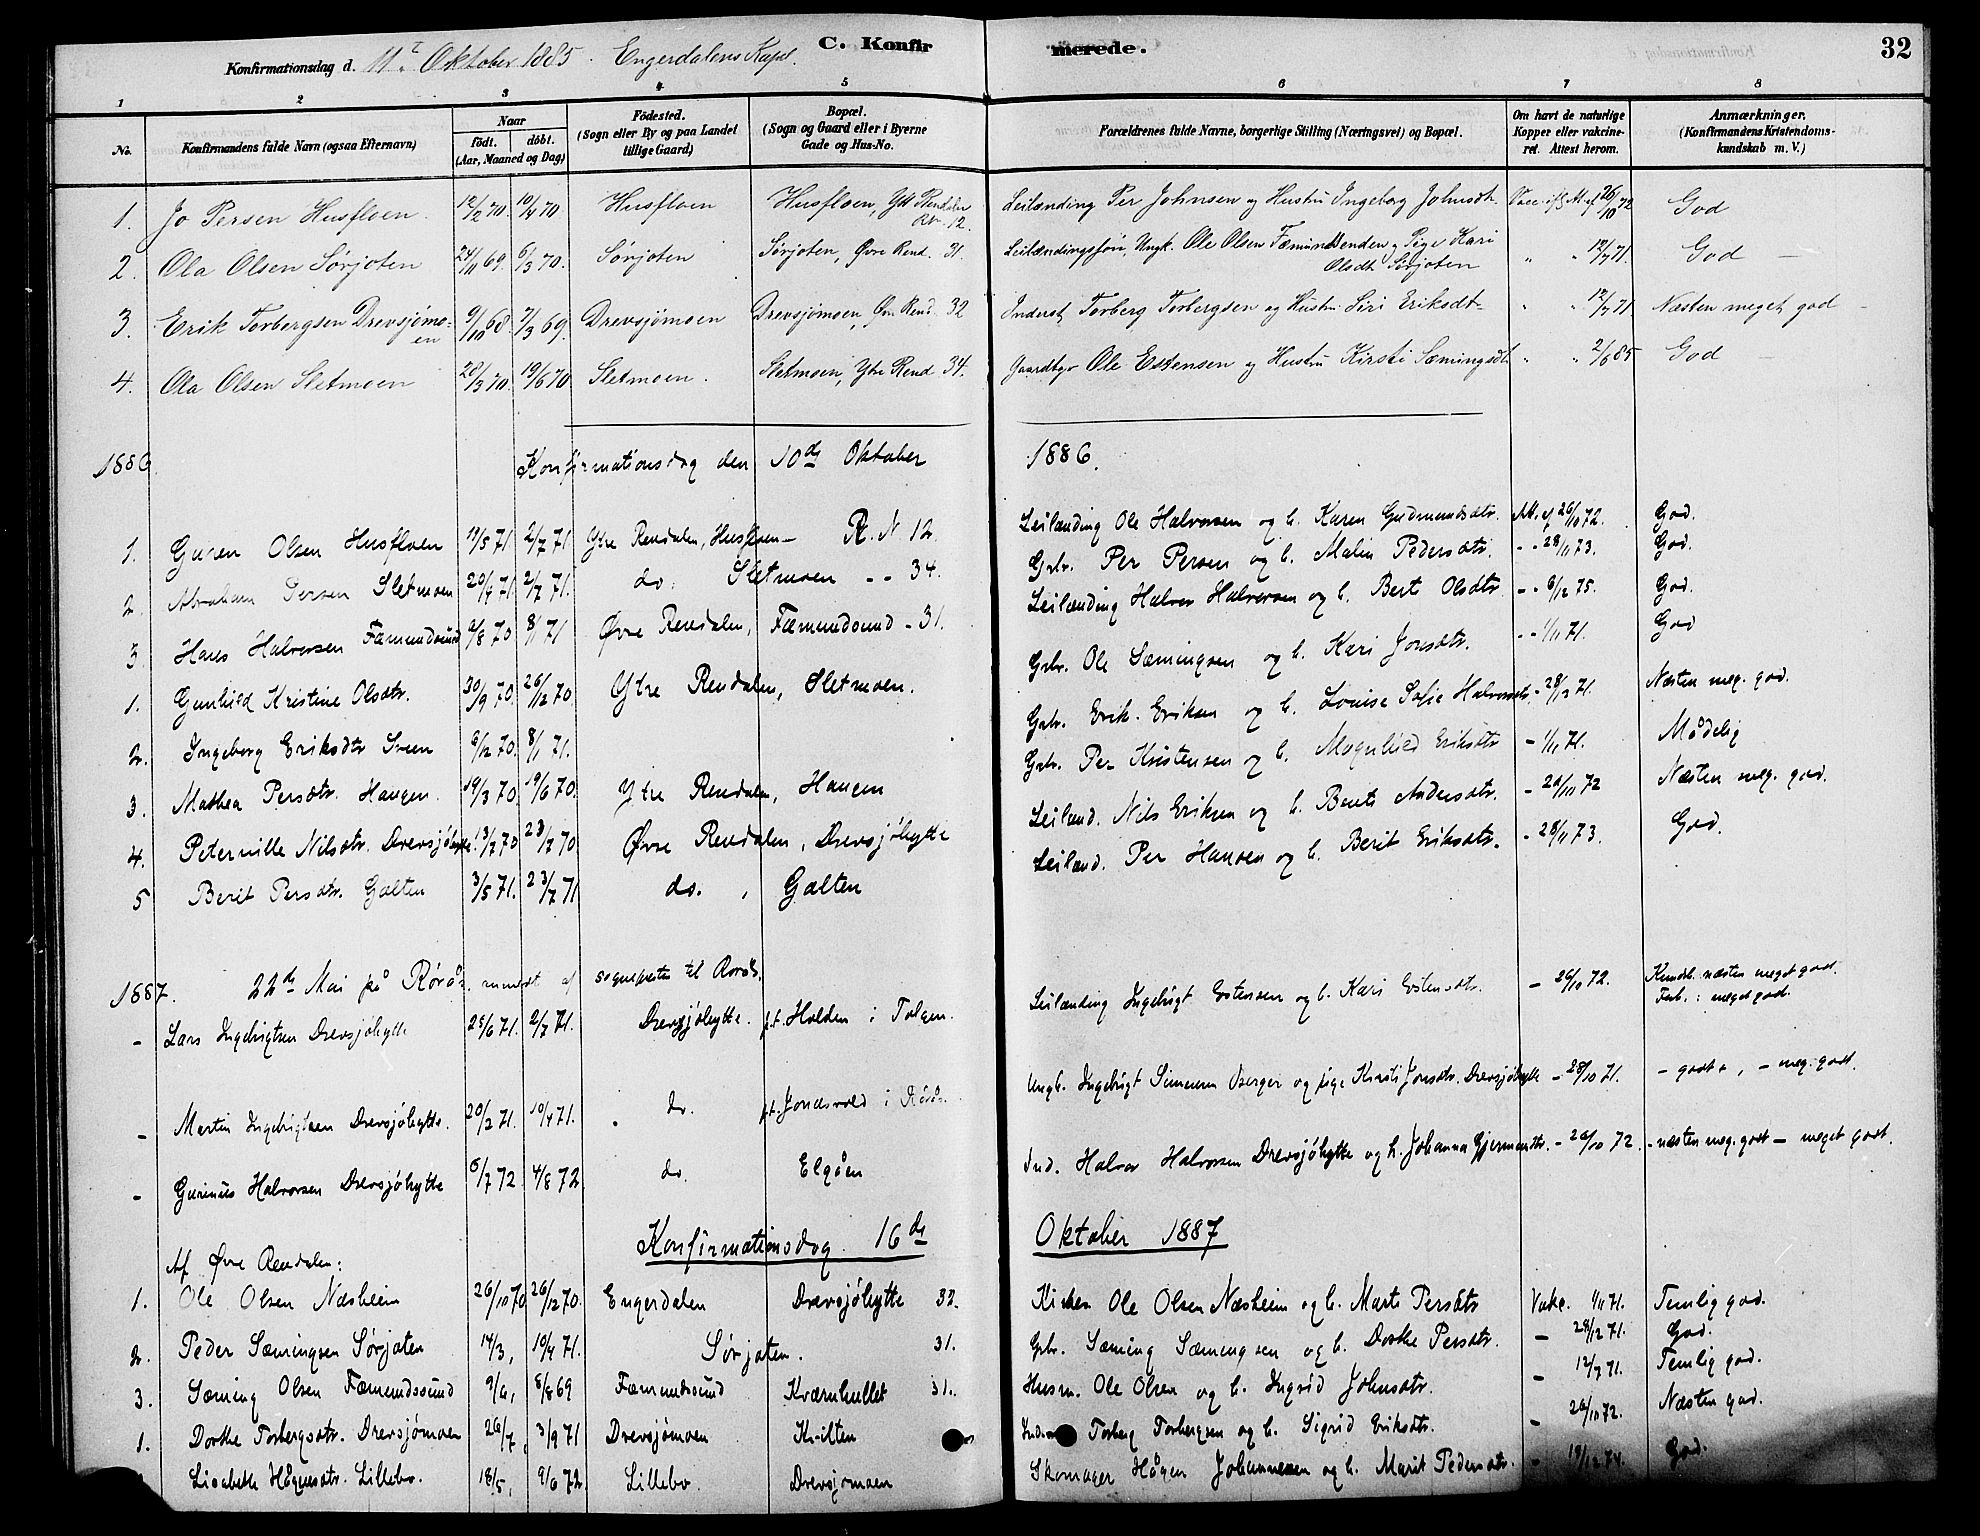 C. Konfirmerede. 32
Konfirmationsdag d. 11. Oktober 1885. Engerdalens Kapel.
1 2 3 4 5 6 7 8
No. Konfirmandens fulde Navn (ogsaa Efternavn) Naar födt. döbt. (Aar, Maaned og Dag) Födested. (Sogn eller By og paa Landet tillige Gaard) Bopæl. (Sogn og Gaard eller i Byerne Gade og Hus-No. Forældrenes fulde Navne, borgerlige Stilling (Næringsvei) og Bopæl. Om havt de naturlige Kopper eller vakcineret. Attest herom. Anmærkninger. (Konfirmandens Kristendomskundskab m. V.)
1. Jo Persen Husfloen. 12/2 70. 10/4 70 Husfloen Husfloen, Ytt Rendalen No. 12. Leilænding Per Johnsen og Hustru Ingeborg Johnsdt. Vacc. 26/10 72 God
2. Ola Olsen Sørjoten 24/11 69. 6/3 70. Sørjoten Sørjoten, Øvre Rend. 31. Leilændingsfön, Ungk. Ole Olsen Fæmundenden og Pige Kari Olsdt Sørjoten " " 12/7 71. God
3. Erik Torbergsen Drevsjømoen 9/10 68 7/3 69. Drevsjømoen Drevsjømoen, Øvr Rend. 32 Inderst Torberg Torbergsen og Hustru Siri Eriksdt " " 12/7 71 Næsten meget god
4. Ola Olsen Sletmoen 28/3 70. 19/6 70 Sletmoen. Sletmoen, Ytre Rend 34. Gaardbgr Ole Estensen og Hustru Kirsti Sæmingsdt " " 2/6 85 God
1886 Konfirmationsdag den 10de Oktober 1886.
1. Olsen Husfloen 19/5 71 2/7 71 Ytre Rendalen, Husfloen R. N. 12. Leilænding Ole Halvorsen og h. Karen Gudmundsdtr. Att. af 26/10 72. God.
2. Abraham Persen Sletmoen 20/4 71. 2/7 71. do. Sletmoen - - 34. Gbr. Per Persen og h. Malin Pedersdtr. - - 28/11 73. God.
3. Hans Halvorsen Fæmundsund 9/8 70 8/1 71 Øvre Rendalen, Fæmundsund - 31. Leilænding Halvor Halvorsen og h. Berit Olsdtr - - 6/12 75. God.
1. Gunhild Kristine Olsdtr. 30/9 70 26/12 70 Ytre Rendalen, Sletmoen. Gbr. Ole Sæmingsen og h. Kari Jonsdtr. - - 1/11 71. God
2. Ingeborg Eriksdtr Sveen 9/12 70. 8/1 71. Gbr. Erik Eriksen og h. Louise Sofie Halvorsdtr - 28/12 71. Næsten meg. god.
3. Mathea Persdtr. Haugen. 19/3 70 19/6 70. Ytre Rendalen, Haugen Gbr. Per Kristensen og h. Magnhild Eriksdtr - 1/11 71. Mådelig
4. Peternille Nilsdtr. Drevsjøhytte. 13/2 70 23/7 70 Øvre Rendalen, Drevsjøhytte Leilænd. Nils Eriksen og h. Berit Andersdtr. - 26/10 72 Næsten meg. god.
5 Berit Persdtr. Galten 3/5 71. 23/7 71 do. , Galten Leilænd. Per Hansen og h. Berit Eriksdtr. - 28/11 73. God.
1887. 22de Mai på Rørås, af sognepresten til Rørås.
- Lars Ingebrigtsen Drevsjøhytte 25/6 71. 2/7 71. Drevsjøhytte. p.t. Holden i Tolgen. Leilænding Ingebrigt Estensen og h. Kari Estensdtr. - 26/10 72. Kundsk. næsten meget godt. Forh.: meget god.
- Martin Ingebrigtsen Drevsjøhytte. 20/2 71. 10/4 71. do. p.t. Jonasvold i Rørås. Ungk. Ingebrigt Simensen og pige Kirsti Jonsdtr. Drevsjøhytte - 28/10 71. - godt , - meg. godt.
- Gurinius Halvorsen Drevsjøhytte 6/7 72 4/8 72. do. Elgåen Ind. Halvor Halvorsen Drevsjøhytte og h. Johanna Gjermundsdtr. - 26/10 72. - næsten meg. godt - meget godt.
Konfirmationsdag 16de Oktober 1887
Af Øvre Rendalen:
1. Ole Olsen Næsheim 26/10 70 26/12 70. Engerdalen Drevsjøhytte 32. Kirkes. Ole Olsen Næsheim og h. Marte Persdtr Vakc. 1/11 71. Temlig god.
2. Peder Sæmingsen Sørjoten 14/3, 10/4 71. Sørjoten. 31. Gbr. Sæming Sæmingsen og h. Dorthe Persdtr. - 28/12 71. God.
3. Sæming Olsen Fæmundssund 9/6, 8/8 69 Fæmundssund Kværnhullet 31. Husm. Ole Olsen og h. Ingrid Johnsdtr. - 12/7 71. Temlig god.
1. Dorthe Torbergsdtr. Drevsjømoen 26/7, 3/9 71 Drevsjømoen Kvilten Torberg Torbergsen og h. Sigrid Eriksdtr. - 26/10 72. Næsten god.
Lisabeth Hågensdtr. Lillebo. 18/5, 9/6 72. Lillebo. Drevsjømoen Skomager Hågen Johannesen og h. Marit Pedersdtr. - 19/12 74. God.